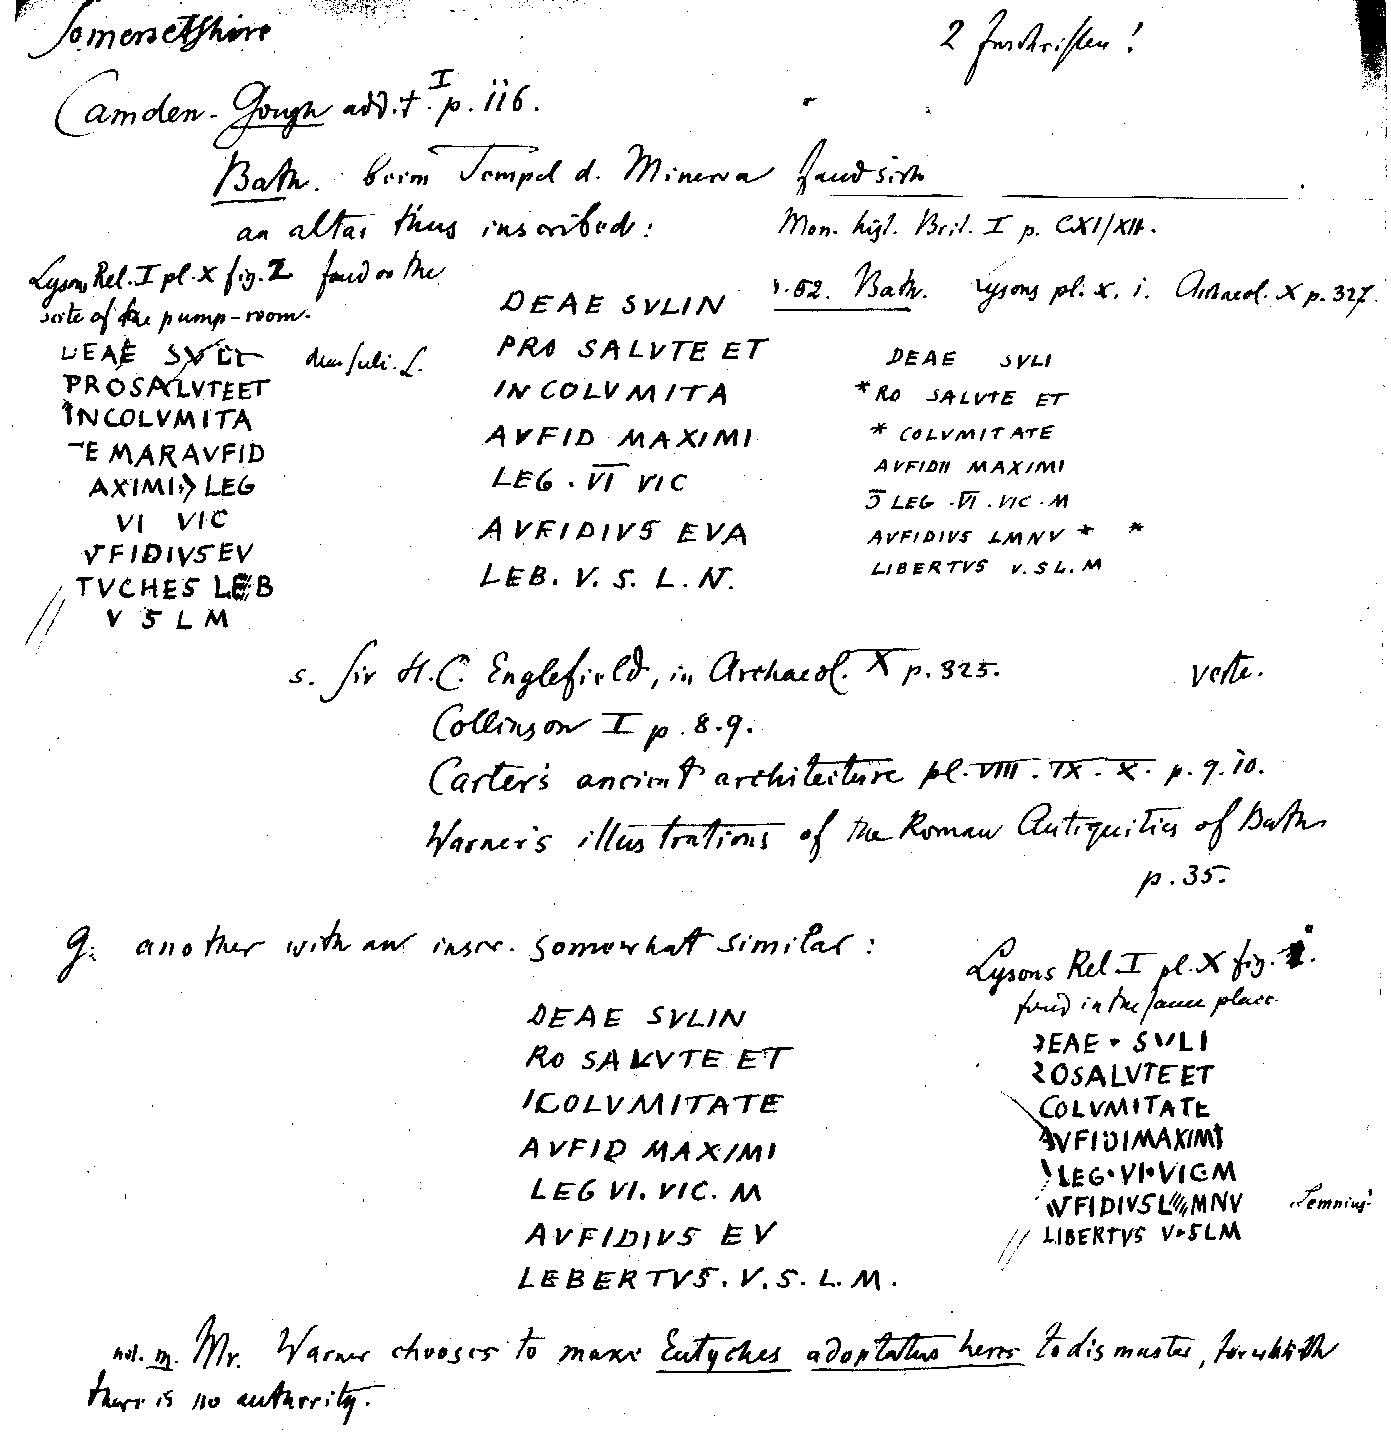 Somersetshire
2 Inschriften!
Camden-Gough add. t. I p. 116.
Bath. beim Tempel d. Minerva fand sich
an altar thus inscribed:
Mon. hist. Brit. I p. CXI/XII.
Lysons Rel. I pl. X fig. 2 found on the
scite of the pump-room.
DEAE SVLI
dea Suli. L.
PROSALVTEET
INCOLVMITA
TE MARAVFID
AXIMI > LEG
VI VIC
VFIDIVSEV
TVCHES LEB
V S L M
DEAE SVLIN
PRO SALVTE ET
INCOLVMITA
AVFID MAXIMI
LEG . VI VIC
AVFIDIVS EVA
LEB. V. S. L. N.
52. Bath. Lysons pl. X. 1. Archaeol. X p. 327.
DEAE SVLI
*RO SALVTE ET
* COLVMITATE
AVFIDII MAXIMI
LEG . VI . VIC . M
AVFIDIVS LMNV * *
LIBERTVS V. S L. M
s. Sir H. C. Englefield, in Archaeol. X p. 325.
verte.
Collinson I p. 8.9.
Carter's ancient architecture pl. VIII. IX. X. p. 9. 10.
Warner's illustrations of the Roman Antiquities of Bath
p. 35.
g. another with an inscr. somewhat similar:
DEAE SVLIN
RO SALVTE ET
ICOLVMITATE
AVFID MAXIMI
LEG VI. VIC. M
AVFIDIVS EV
LEBERTVS. V. S. L. M.
Lysons Rel. I pl. X fig. 1.
found in the same place
DEAE . SVLI
ROSALVTEET
COLVMITATE
AVFIDIMAXIMI
LEG . VI . VICM
VFIDIVSL MNV
Lemnius
LIBERTVS V . SLM
not. m. Mr. Warner chooses to make Eutyches adoptatus heres to his master, for which
there is no authority.